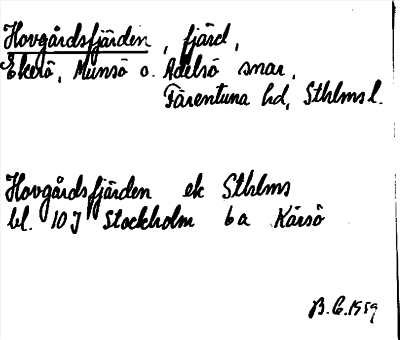 Hovgårdsfjärden, fjärd,
Ekerö, Munsö o. Adelsö snar,
Färentuna hd, Sthlms l.
Hovgårdsfjärden ek Sthlms
bl. 10 J Stockholm 6a Kärsö
B.G. 1959